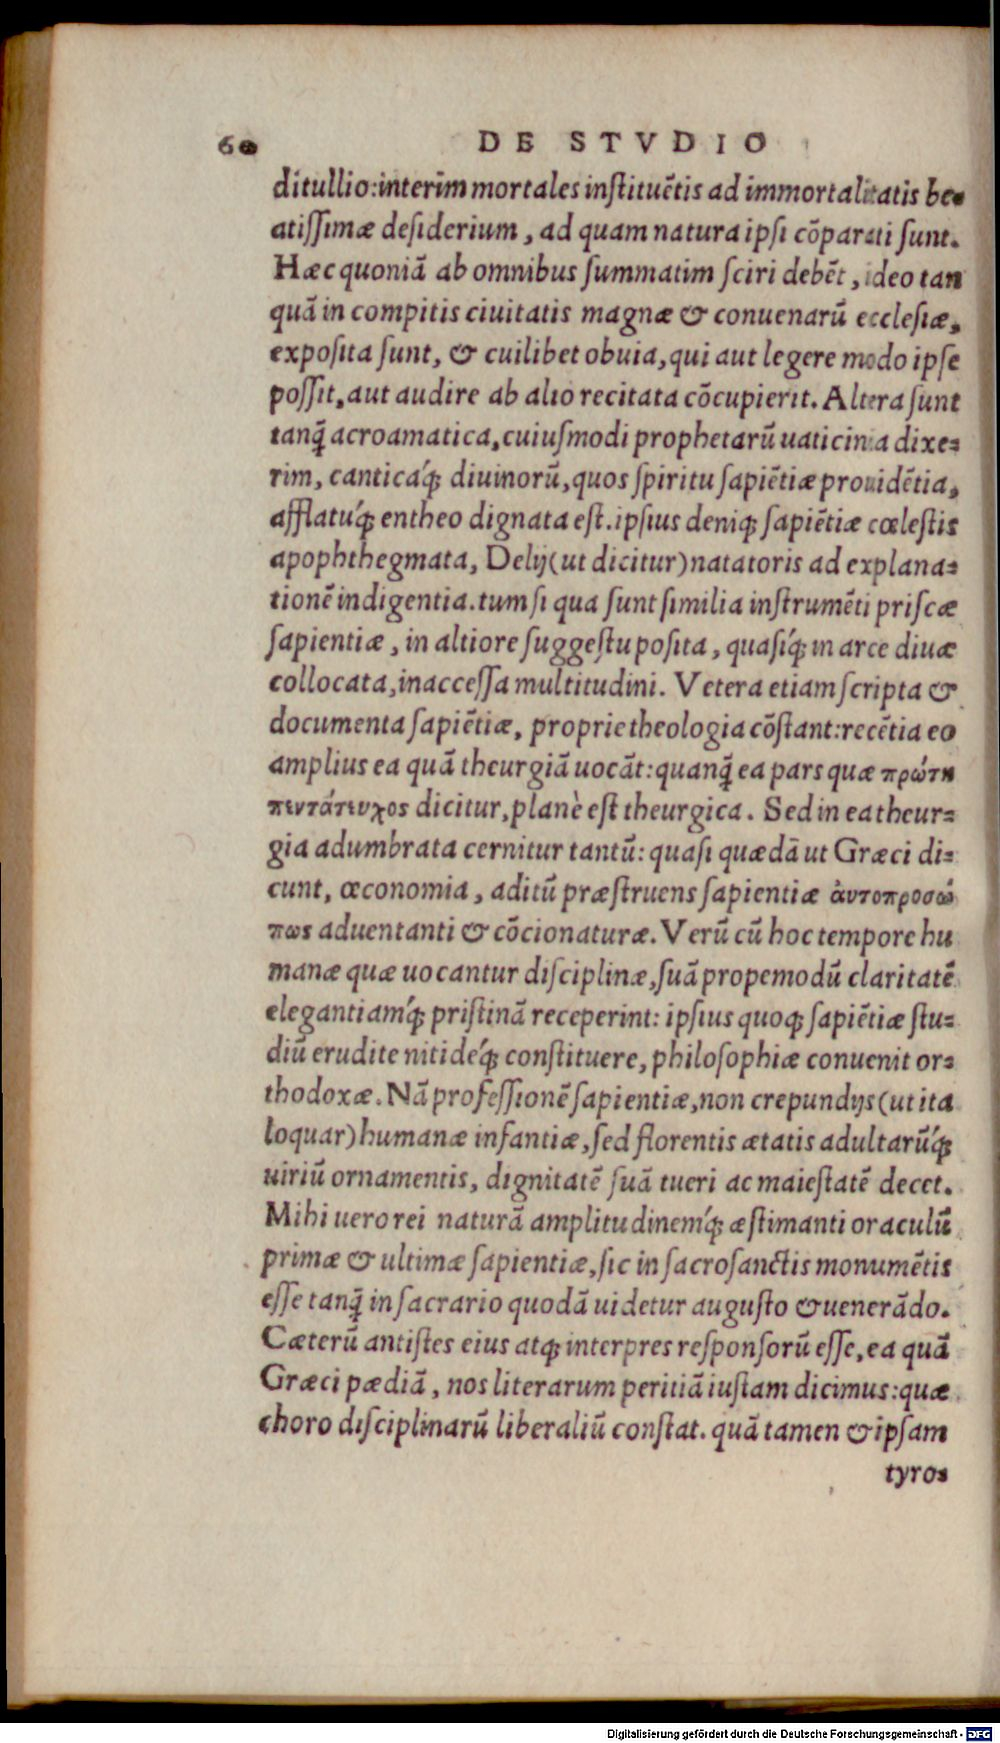 60 DE STVDIO
ditullio:interim mortales instituẽtis ad immortalitatis be-
atissimæ desiderium, ad quam natura ipsi cõparati sunt.
Hæc quoniã ab omnibus summatim sciri debẽt, ideo tan
quã in compitis ciuitatis magnæ & conuenarũ ecclesiæ,
exposita sunt, & cuilibet obuia, qui aut legere modo ipse
possit, aut audire ab alio recitata cõcupierit. Altera sunt
tanq̃ acroamatica, cuiusmodi prophetarũ uaticinia dixe=
rim, canticáq; diuinorũ, quos spiritu sapiẽtiæ prouidẽtia,
afflatúq; entheo dignata est. ipsius deniq; sapiẽtiæ cœlestis
apophthegmata, Delij(ut dicitur)natatoris ad explana=
tionẽ indigentia. tum si qua sunt similia instrumẽti priscæ
sapientiæ, in altiore suggestu posita, quasíq; in arce diuæ
collocata, inaccessa multitudini. Vetera etiam scripta &
documenta sapiẽtiæ, proprie theologia cõstant: recẽtia eo
amplius ea quã theurgiã uocãt: quanq̃ ea pars quæ πρώτη
πεντάτευχος dicitur, planè est theurgica. Sed in ea theur=
gia adumbrata cernitur tantũ: quasi quædã ut Græci di=
cunt, œconomia, aditũ præstruens sapientiæ ἀυτοπροσώ
πως aduentanti & cõcionaturæ. Verũ cũ hoc tempore hu
manæ quæ uocantur disciplinæ, suã propemodũ claritatẽ
elegantiamq́; pristinã receperint: ipsius quoq; sapiẽtiæ stu=
diũ erudite nitidéq; constituere, philosophiæ conuenit or=
thodoxæ. Nã professionẽ sapientiæ, non crepundijs(ut ita
loquar)humanæ infantiæ, sed florentis ætatis adultarũq́;
uiriũ ornamentis, dignitatẽ suã tueri ac maiestatẽ decet.
Mihi uero rei naturã amplitudinemq́; æstimanti oraculũ
primæ & ultimæ sapientiæ, sic in sacrosanctis monumẽtis
esse tanq̃ in sacrario quodã uidetur augusto & uenerãdo.
Cæterũ antistes eius atq; interpres responsorũ esse, ea quã
Græci pædiã, nos literarum peritiã iustam dicimus: quæ
choro disciplinarũ liberaliũ constat. quã tamen & ipsam
tyros
Digitalisierung gefördert durch die Deutsche Forschungsgemeinschaft - DFG